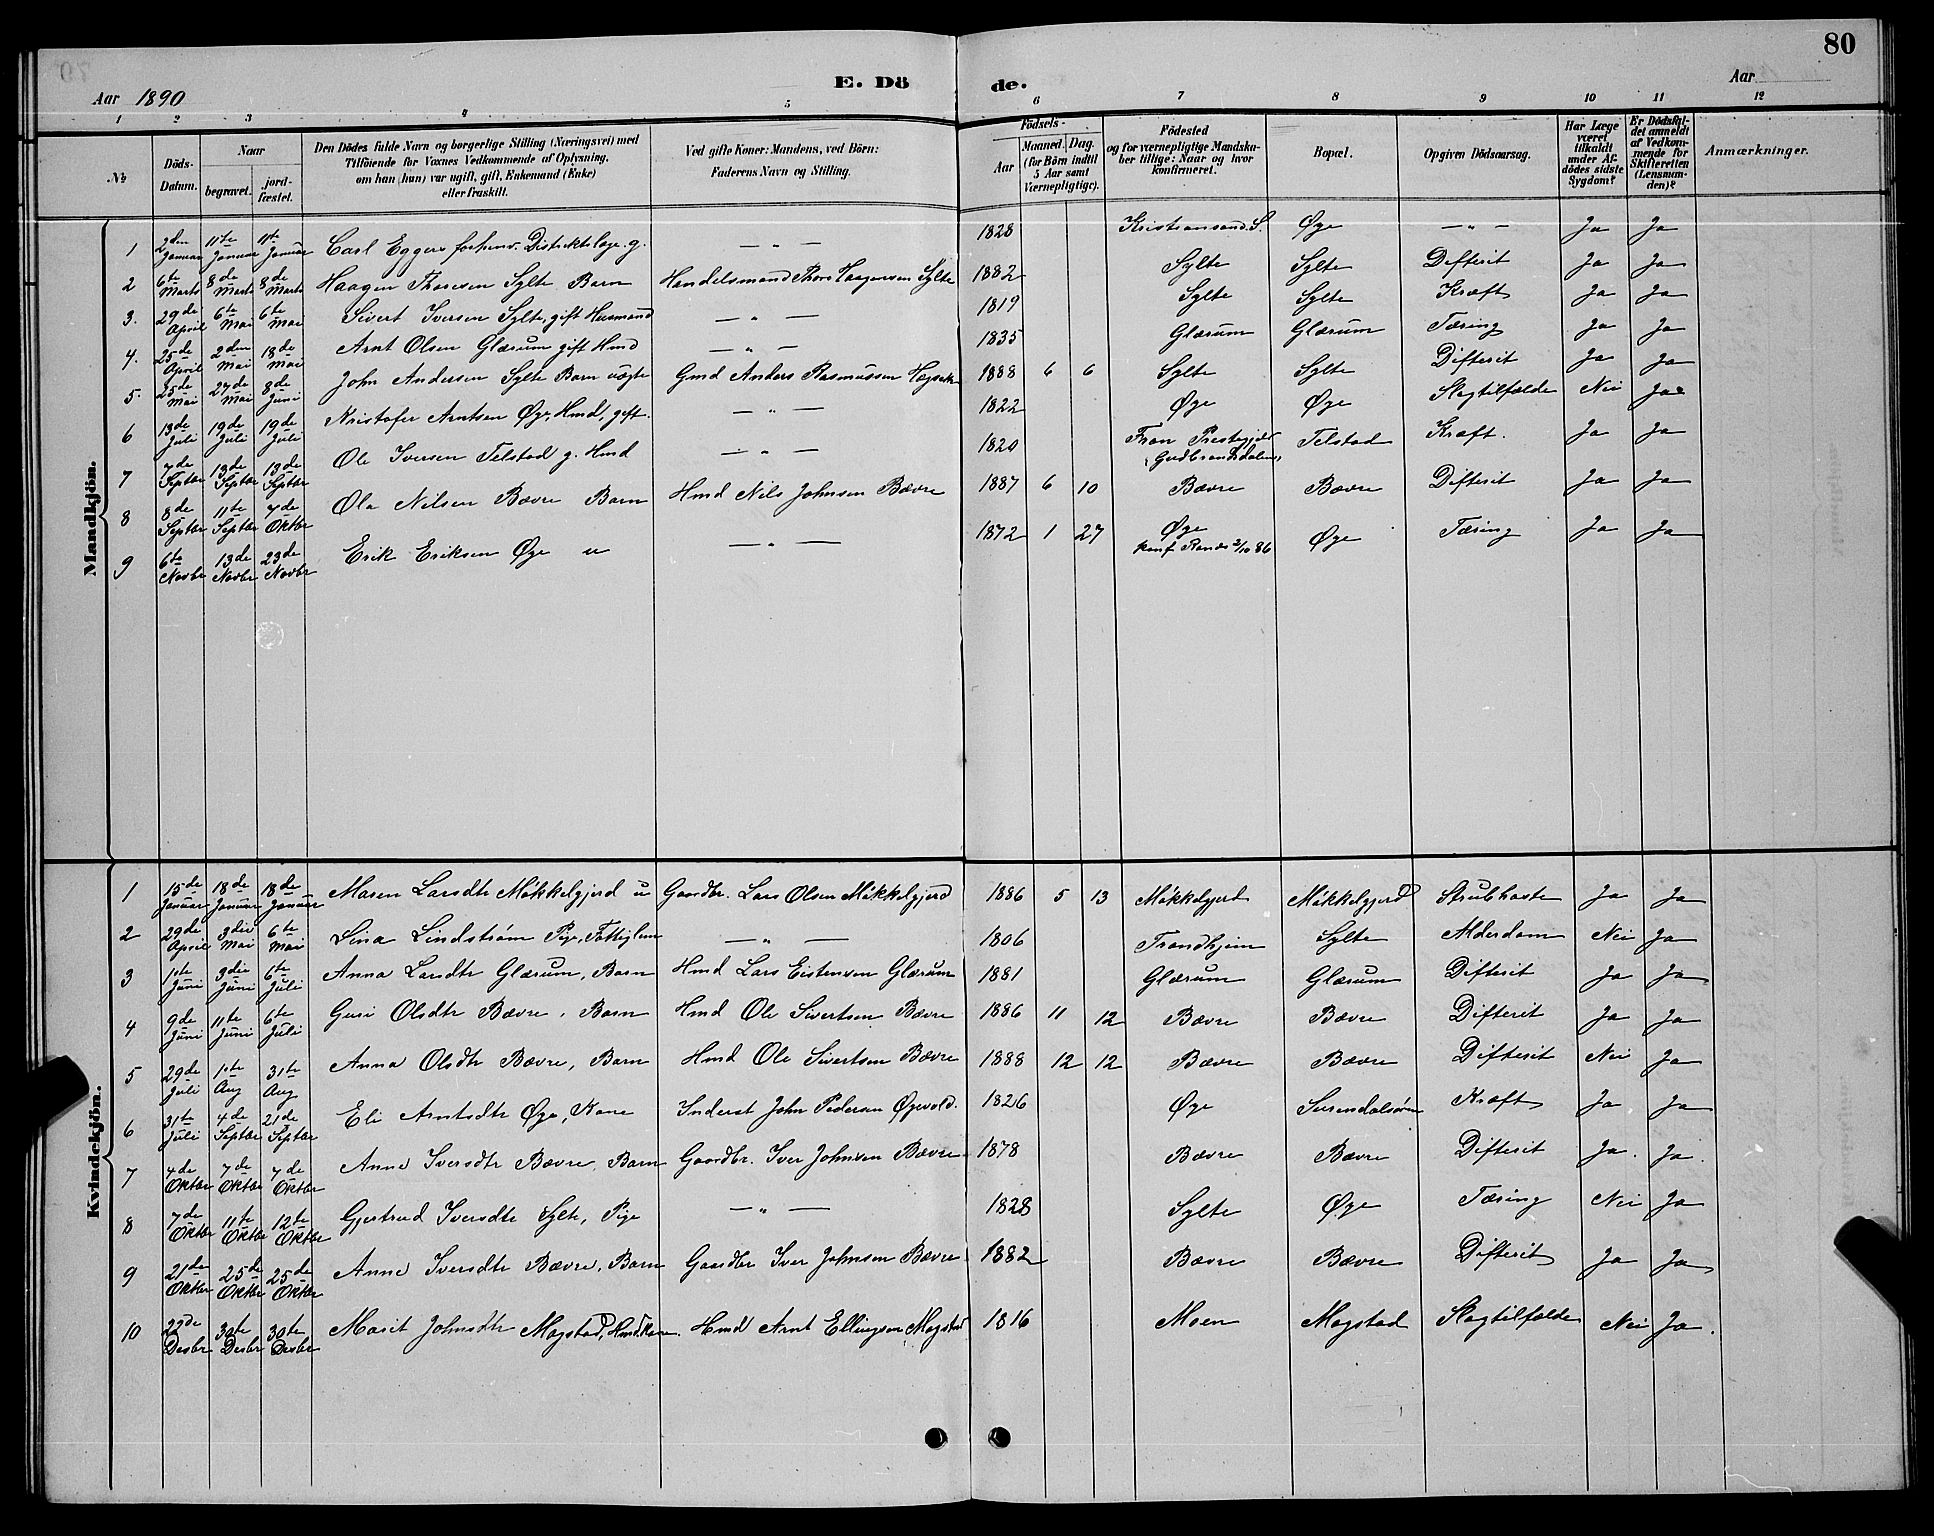 80
E. Dö de.
Aar 1890
Aar
1 2 3 4 5 6 7 8 9 10 11 12
№
Döds-Datum.
Naar
begravet.
jord-fæstet.
Den Dödes fulde Navn og borgerlige Stilling (Næringsvei) med
Tilföiende for Voxnes Vedkommende af Oplysning,
om han (hun) var ugift, gift, Enkemand (Enke)
eller fraskilt.
Ved gifte Koner: Mandens, ved Börn:
Faderens Navn og Stilling.
Födsels-
Aar
Maaned. Dag.
(for Börn indtil
5 Aar samt
Værnepligtige).
Födested
og for værnepligtige Mandska-
ber tillige: Naar og hvor
konfirmeret.
Bopæl.
Opgiven Dödsaarsag.
Har Læge
været
tilkaldt
under Af-
dödes sidste
Sygdom?
Er Dödsfal-
det anmeldt
af Vedkom-
mende for
Skifteretten
(Lensman-
den)?
Anmærkninger.
Mandkjön.
1 2den Januar 11te Januar 11te Januar Carl Eggers forhenv. Distriktslæge. g. — " — 1828 Kristiansand. S. Øye — " — Ja Ja
2 6te Marts 8de Marts 8de Marts Haagen Thoresen Sylte Barn Handelsmand Thore Haagensen Sylte 1882 Sylte Sylte Difterit Ja Ja
3. 29de April 6te Mai 6te Mai Sivert Iversen Sylte, gift Husmand — " — 1819 Sylte Sylte Kræft Ja Ja
4. 25de April 2den Mai 18de Mai Arnt Olsen Glærum gift Hmd — " — 1835 Glærum Glærum Tæring Ja Ja
5. 25de Mai 27de Mai 8de Juni John Andersen Sylte Barn uægte Gmd Anders Rasmussen 1888 6 6 Sylte Sylte Difterit Ja Ja
6 13de Juli 19de Juli 19de Juli Kristofer Arntsen Øye, Hmd, gift. — " — 1822 Øye Øye Slagtilfælde Nei Ja
7 7de Septbr 13de Septbr 13de Septbr Ole Iversen Telstad g. Hmd — " — 1820 Fron Prestegjeld Gudbrandsdalen, Telstad Kræft. Ja Ja
8 8de Septbr 11te Septbr 4de Oktbr Ola Nilsen Bævre Barn Hmd Nils Johnsen Bævre 1887 6 10 Bævre Bævre Difterit Ja Ja
9 6te Novbr 13de Novbr 23de Novbr Erik Eriksen Øye u — " — 1872 1 27 Øye konf Ranæs 2/10 86 Øye Tæring Ja Ja
Kvindekjön.
1 15de Januar 18de Januar 18de Januar Maren Larsdtr Møkkelgjerd u Gaardbr. Lars Olsen Møkkelgjerd 1886 5 13 Møkkelgjerd Møkkelgjerd Strubhoste Ja Ja
2 29de April 3die Mai 6te Mai Lina Lindstrøm Pige, Fattiglem — " — 1806 Trondhjem Sylte Alderdom Nei Ja
3 1ste Juni 3die Juni 6te Juli Anna Larsdtr Glærum, Barn Hmd Lars Eistensen Glærum 1881 Glærum Glærum Difterit Ja Ja
4 9de Juni 11te Juni 6te Juli Guri Olsdtr Bævre, Barn Hmd Ole Sivertsen Bævre 1886 11 12 Bævre Bævre Difterit Ja Ja
5 29de Juli 1ste Aug 31te Aug Anna Olsdtr Bævre, Barn Hmd Ole Sivertsen Bævre 1888 12 12 Bævre Bævre Difterit Nei Ja
6 31te Juli 4de Septbr 21de Septbr Eli Arntsdtr Øye, Kone Inderst John Pedersen Øyevold. 1826 Øye Surendalsøren Kræft Ja Ja
7 4de Oktbr 7de Oktbr 7de Oktbr Anne Iversdtr Bævre, Barn Gaardbr. Iver Johnsen Bævre 1878 Bævre Bævre Difterit Ja. Ja.
8 7de Oktbr 11te Oktbr 12te Oktbr Gjertrud Iversdtr Sylte, Pige — " — 1828 Sylte Øye Tæring Nei Ja
9 21de Oktbr 25de Oktbr 25de Oktbr Anne Iversdtr Bævre, Barn Gaardbr Iver Johnsen Bævre 1882 Bævre Bævre Difterit Ja Ja
10 22de Desbr 30te Desbr 30te Desbr Marit Johnsdtr Mogstad, Hmdkone. Hmd Arnt Ellingsen Mogstad 1816 Moen Mogstad Slagtilfælde Nei Ja.